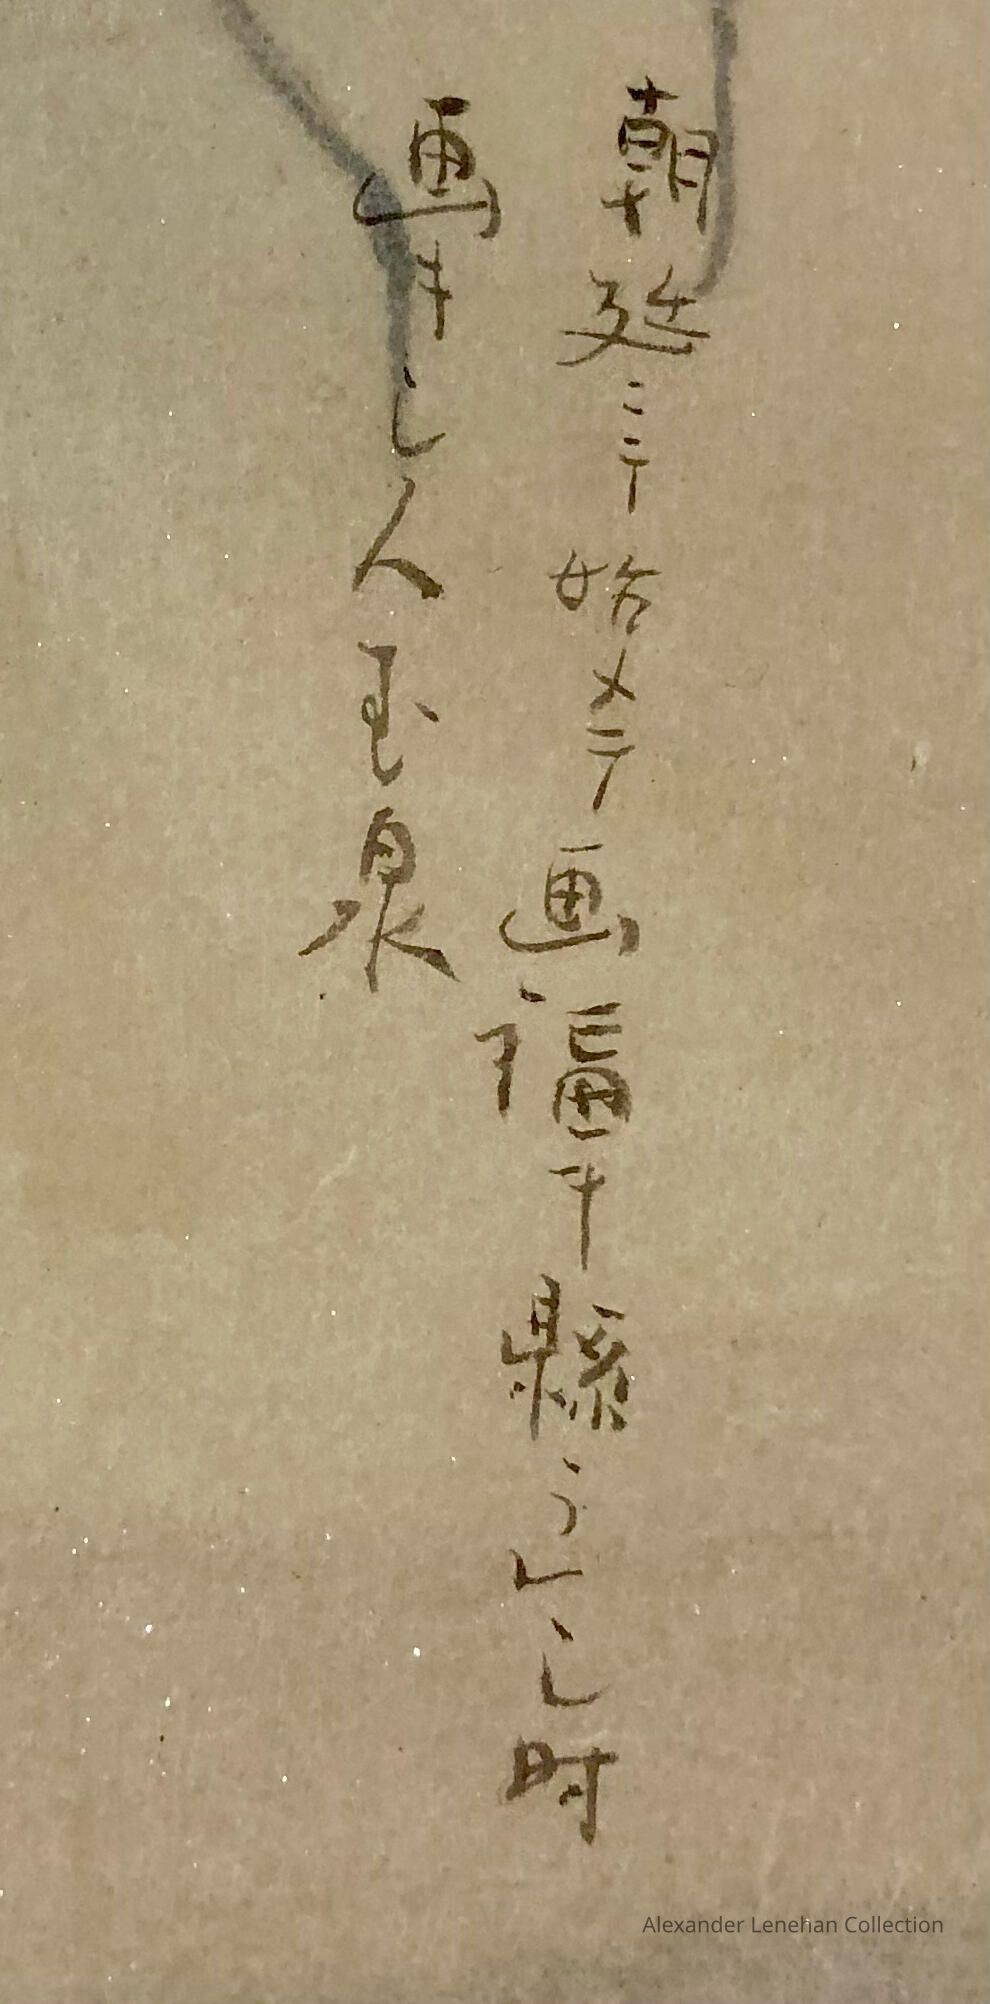 朝廷ニテ始メテ画幅ヲ縣ラレし時
画キし人玉泉
Alexander Lenehan Collection